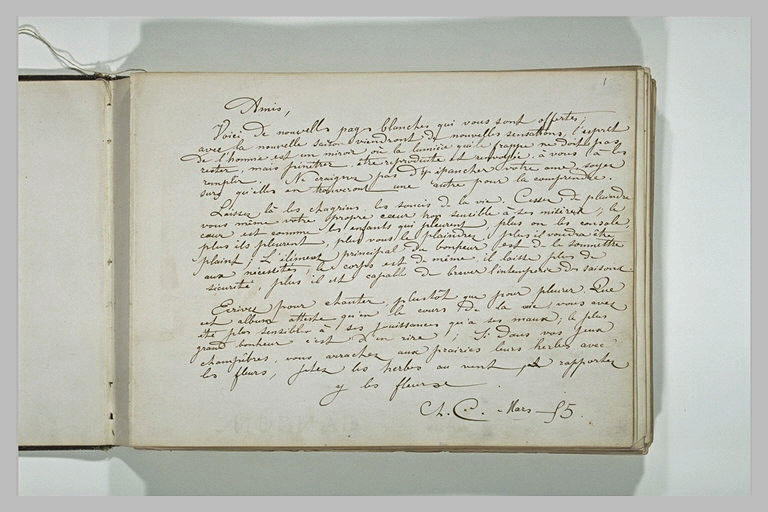 1
Amis,
Voici de nouvelles pages blanches qui vous sont offertes;
avec la nouvelle saison viendront de nouvelles sensations, l'esprit
de l'homme est un miroir où la lumière qui le frappe ne doit pas y
rester, mais pénétrer, être reproduite et renvoyée, à vous à les
remplir. Ne craignez pas d'y épancher votre ame, soyez
surs qu'elles en trouveront une autre pour la comprendre.
Laissez là les chagrins, les soucis de la vie. Cessez de plaindre
vous même votre propre cœur trop sensible à ses misères, le
cœur est comme les enfants qui pleurent, plus on les console
plus ils pleurent, plus vous le plaindrez, plus il voudra être
plaint; L'élément principal du bonheur est de se soumettre
aux nécessités, le corps est de même, il laisse plus de
sécurité, plus il est capable de braver l'intempérie des saisons.
Ecrivez pour chanter plustôt que pour pleurer. Que
cet album atteste qu'en le cours de la vie, vous avez
été plus sensible à ses jouissances qu'à ses maux; le plus
grand bonheur c'est d'en rire; Si dans vos jeux
champêtres, vous arrachez aux prairies leurs herbes avec
les fleurs, jetez les herbes au vent, et rapportez
y les fleurs
Ch. C. Mars 55.